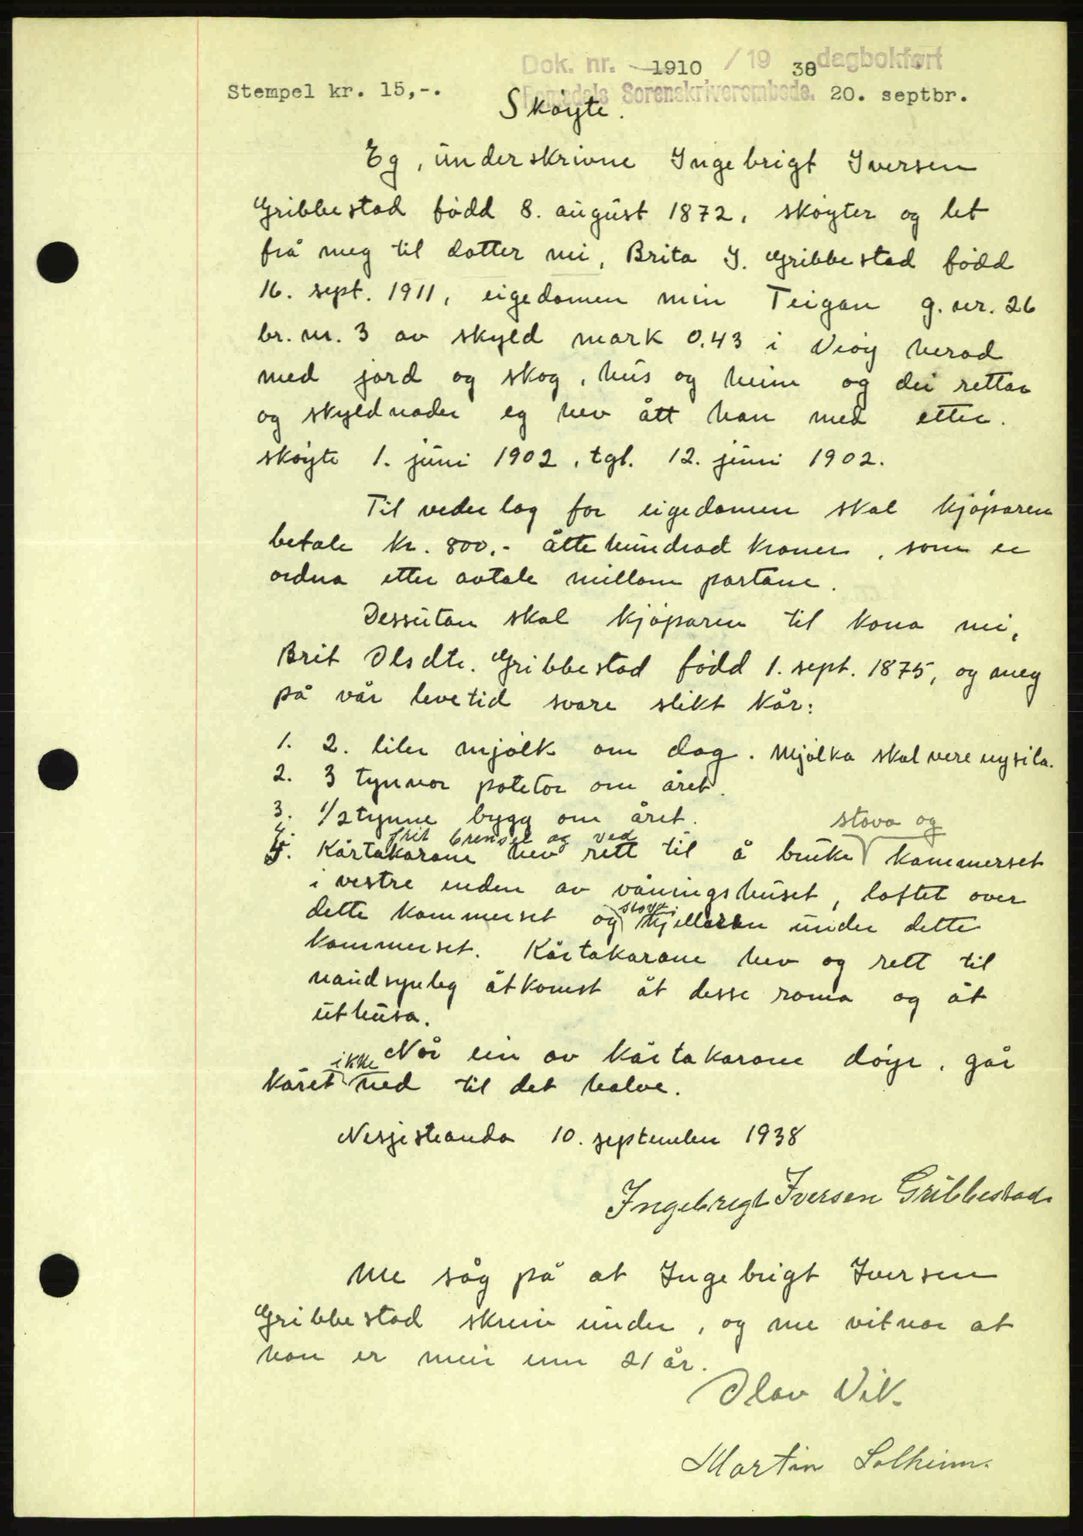 Dok. nr. 1910 / 19 38 dagbokført
Stempel kr. 15,-. Romsdals Sorenskriverembede. 20. septbr.
Skøyte.
Eg, underskrivne Ingebrigt Iversen
Gribbestad fødd 8. august 1872, skøyter og let
frå meg til dotter mi, Brita I. Gribbestad fødd
16. sept. 1911, eigedomen min Teigan g. nr. 26
br. nr. 3 av skyld mark 0.43 i Veøy herad
med jord og skog, hus og heim og dei rettar
og skyldnader eg hev ått han med etter
skøyte 1. juni 1902, tgl. 12. juni 1902.
Til vederlag for eigedomen skal kjøparen
betale kr. 800,- åtte hundrad kroner, som er
ordna etter avtale millom partane.
Dessutan skal kjøparen til kona mi,
Brit Olsdtr. Gribbestad fødd 1. sept. 1875, og meg
på vår levetid svare slikt kår:
1. 2. liter mjølk om dag. Mjølka skal vere nysila.
2. 3 tynnor poteter om året.
3. 1/2 tynne bygg om året.
4. frit brensel og ved stova og
5. Kårtakarane hev rett til å bruke kammerset
i vestre enden av våningshuset, loftet over
dette kammerset og kjellaren under dette
kammerset. Kårtakarane hev og rett til
naudsynleg åtkomst åt desse roma og åt
uthusa.
Når ein av kårtakarane døyr, går
ikke
kåret ned til det halve.
Nesjestranda 10. september 1938
Ingebrigt Iversen Gribbestad
Me såg på at Ingebrigt Iversen
Gribbestad skreiv under, og me vitnar at
han er meir enn 21 år.
Olav Vik.
Martin Solheim.